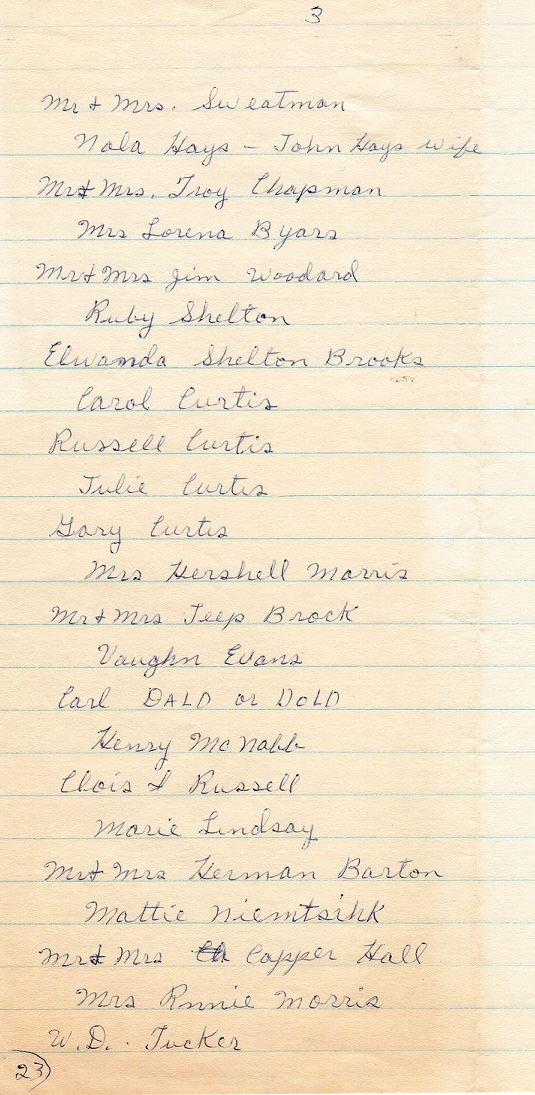 3
Mr & Mrs. Sweatman
Nola Hays - John Hays wife
Mr & Mrs. Troy Chapman
Mrs Lorena Byars
Mr & Mrs Jim Woodard
Ruby Shelton
Elwanda Shelton Brooks
Carol Curtis
Russell Curtis
Julie Curtis
Gary Curtis
Mrs Hershell Morris
Mr & Mrs Jeep Brock
Vaughn Evans
Carl DALD or DOLD
Henry McNabb
Clois & Russell
Marie Lindsay
Mr & Mrs Herman Barton
Mattie Niemtsihk
Mr & Mrs Copper Hall
Mrs Rnnie Morris
W.D. Tucker
23